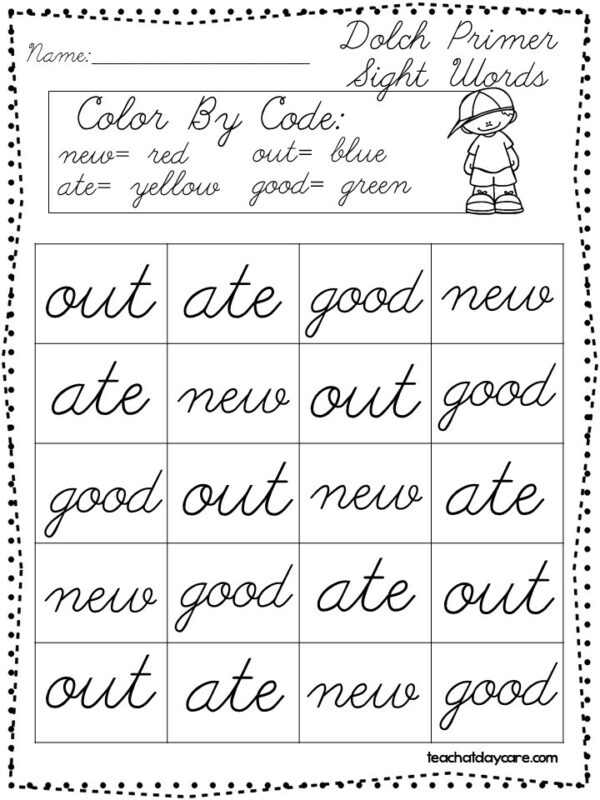 Name:____________________
Dolch Primer
Sight Words
Color By Code:
new= red out= blue
ate= yellow good= green
out ate good new
ate new out good
good out new ate
new good ate out
out ate new good
teachatdaycare.com